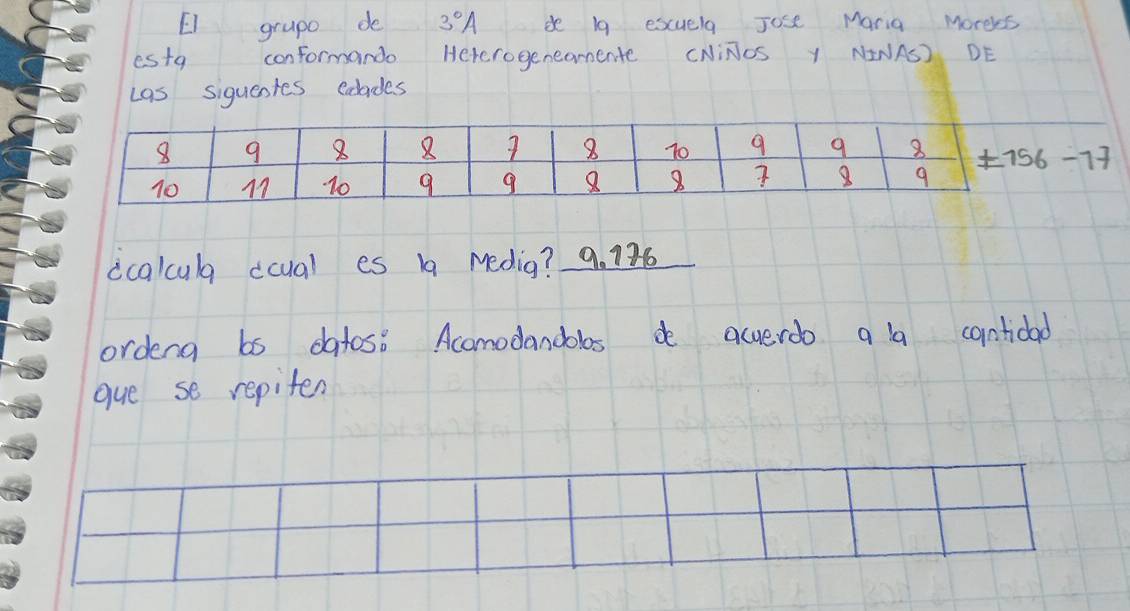 El grupo de 3°A de la escuela Jose Maria Morelos
esta conformando Heterogeneamente (NiÑOS y NIÑAS) DE
Las siguentes edades
8 9 8 8 7 8 10 9 9 8
10 11 10 9 9 8 8 7 8 9
±156-17
¿calcula ¿cual es la Media? 9.176
ordena los datos: Acomodandolos de acuerdo a la cantidad
que se repiten